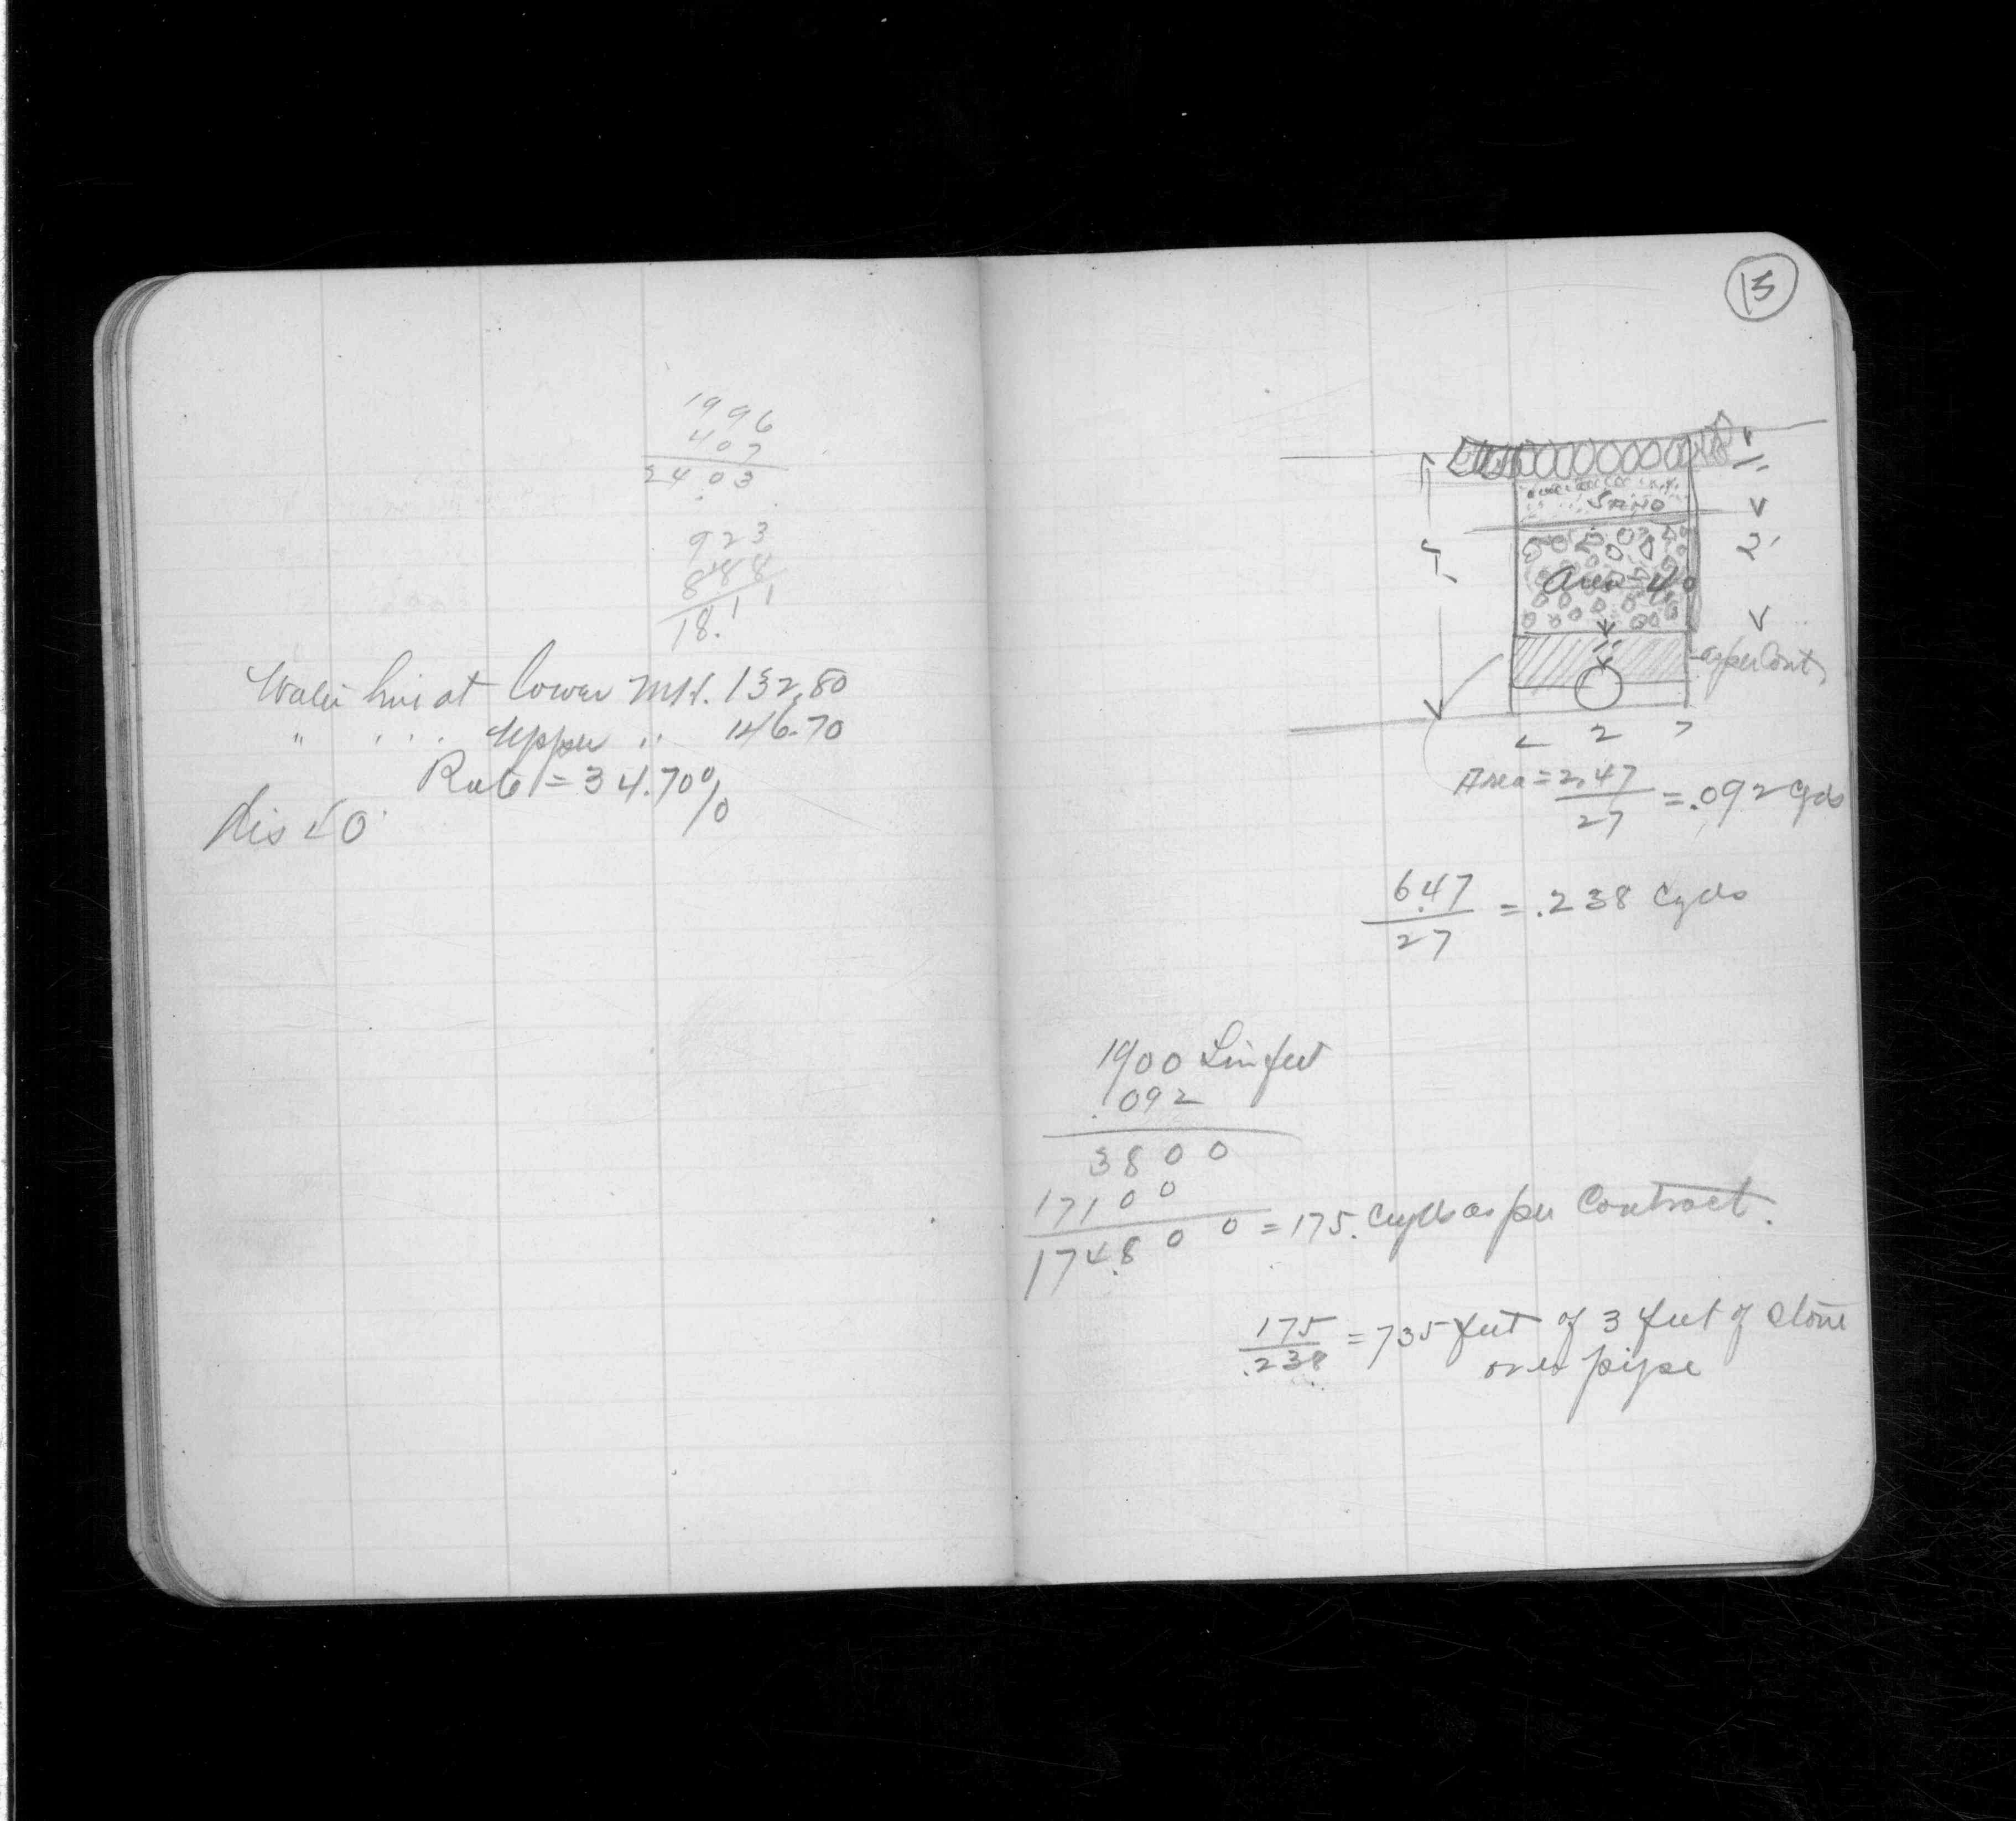 1996
407
2403
923
888
18.11
Water line at lower M.H. 132.80
" " " Upper " 146.70
Rate = 34.70%
dis 40'
15
SAND
2'
Area = 4.0
as per Cont.
2
Area = 2.47
27
= .092 Cyds
6.47
27
= .238 Cyds
1900 Lin feet
.092
3800
17100
174.800 = 175. Cyds as per Contract.
175
.238
= 735 feet of 3 feet of stone
over pipe